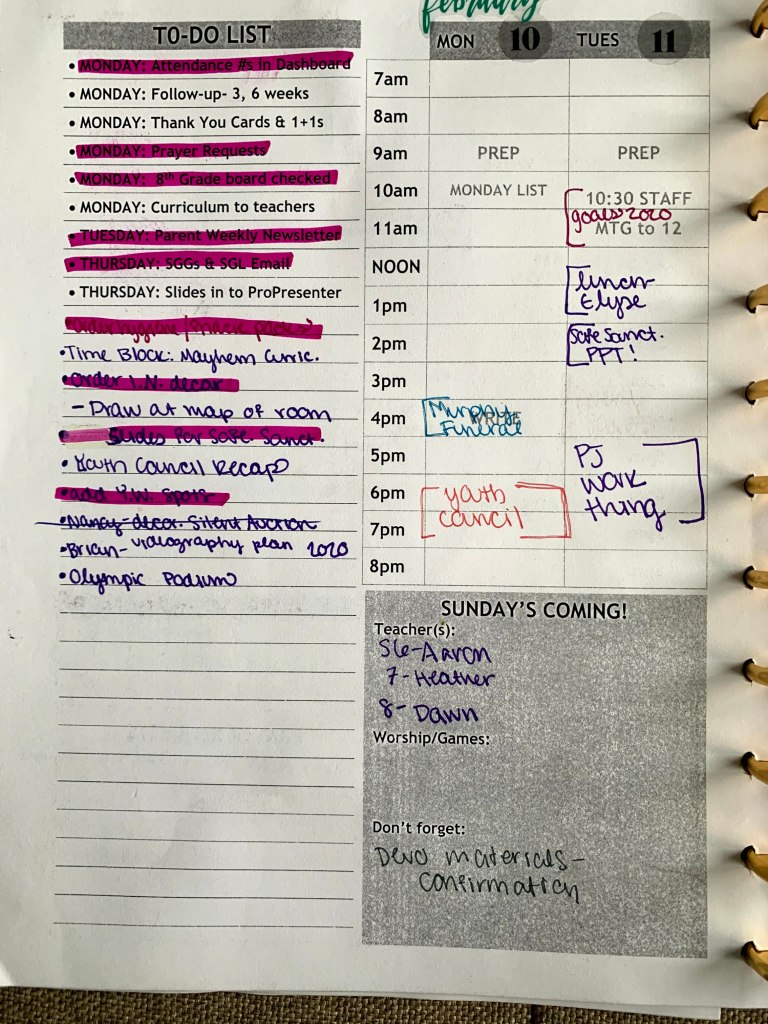 february
TO-DO LIST
• MONDAY: Attendance #s in Dashboard
• MONDAY: Follow-up- 3, 6 weeks
• MONDAY: Thank You Cards & 1+1s
• MONDAY: Prayer Requests
• MONDAY: 8th Grade board checked
• MONDAY: Curriculum to teachers
• TUESDAY: Parent Weekly Newsletter
• THURSDAY: SGGs & SGL Email
• THURSDAY: Slides in to ProPresenter
• Time Block: Mayhem Curric.
• Order I.N. decor
- Draw at map of room
• Slides for Safe. Sanct.
• Youth Council Recap
• add Y.W. Spots
• Nancy-decor. Silent Auction
• Brian- videography plan 2020
• Olympic Podium
MON 10 TUES 11
7am
8am
9am PREP PREP
10am MONDAY LIST 10:30 STAFF
goals 2020
11am MTG to 12
NOON
lunch-
1pm Elyse
2pm Safe Sanct.
PPT!
3pm
4pm Murphy
Funeral
5pm PJ
work
6pm youth thing
7pm council
8pm
SUNDAY'S COMING!
Teacher(s):
56-Aaron
7-Heather
8- Dawn
Worship/Games:
Don't forget:
Devo materials-
confirmation